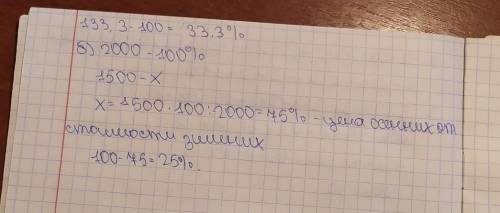 133,3-100= 33,3%
б) 2000-100%
1500-x
x= 1500·100:2000=75% - цена осенних от
стоимости зимних
100-75=25%.